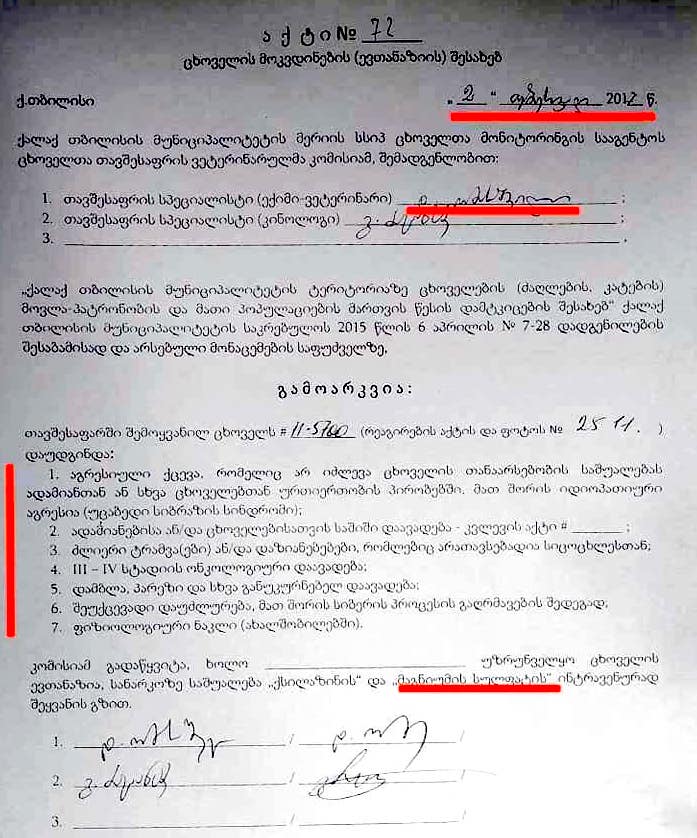 ა ქ ტ ი № 72
ცხოველის მოკვდინების (ევთანაზიის) შესახებ
ქ.თბილისი „ 2 “ თებერვალი 2017 წ.
ქალაქ თბილისის მუნიციპალიტეტის მერიის სსიპ ცხოველთა მონიტორინგის სააგენტოს
ცხოველთა თავშესაფრის ვეტერინარულმა კომისიამ, შემადგენლობით:
1. თავშესაფრის სპეციალისტი (ექიმი-ვეტერინარი) ;
2. თავშესაფრის სპეციალისტი (კინოლოგი) ;
3. .
„ქალაქ თბილისის მუნიციპალიტეტის ტერიტორიაზე ცხოველების (ძაღლების, კატების)
მოვლა-პატრონობის და მათი პოპულაციების მართვის წესის დამტკიცების შესახებ“ ქალაქ
თბილისის მუნიციპალიტეტის საკრებულოს 2015 წლის 6 აპრილის № 7-28 დადგენილების
შესაბამისად და არსებული მონაცემების საფუძველზე,
გ ა მ ო ა რ კ ვ ი ა :
თავშესაფარში შემოყვანილ ცხოველს # 11-5700 (რეაგირების აქტის და ფოტოს № 25 11. )
დაუდგინდა:
1. აგრესიული ქცევა, რომელიც არ იძლევა ცხოველის თანაარსებობის საშუალებას
ადამიანთან ან სხვა ცხოველებთან ურთიერთობის პირობებში, მათ შორის იდიოპათიური
აგრესია (უცაბედი სიბრაზის სინდრომი);
2. ადამიანებისა ან/და ცხოველებისათვის საშიში დაავადება - კვლევის აქტი # ;
3. ძლიერი ტრამვა(ები) ან/და დაზიანებებები, რომლებიც არათავსებადია სიცოცხლესთან;
4. III – IV სტადიის ონკოლოგიური დაავადება;
5. დამბლა, პარეზი და სხვა განუკურნებელ დაავადება;
6. შეუქცევადი დაუძლურება, მათ შორის სიბერის პროცესის გაღრმავების შედეგად;
7. ფიზიოლოგიური ნაკლი (ახალშობილებში).
კომისიამ გადაწყვიტა, ხოლო უზრუნველყო ცხოველის
ევთანაზია, სანარკოზე საშუალება „ქსილაზინის“ და „მაგნიუმის სულფატის“ ინტრავენურად
შეყვანის გზით.
1. / /
2. / /
3. / /